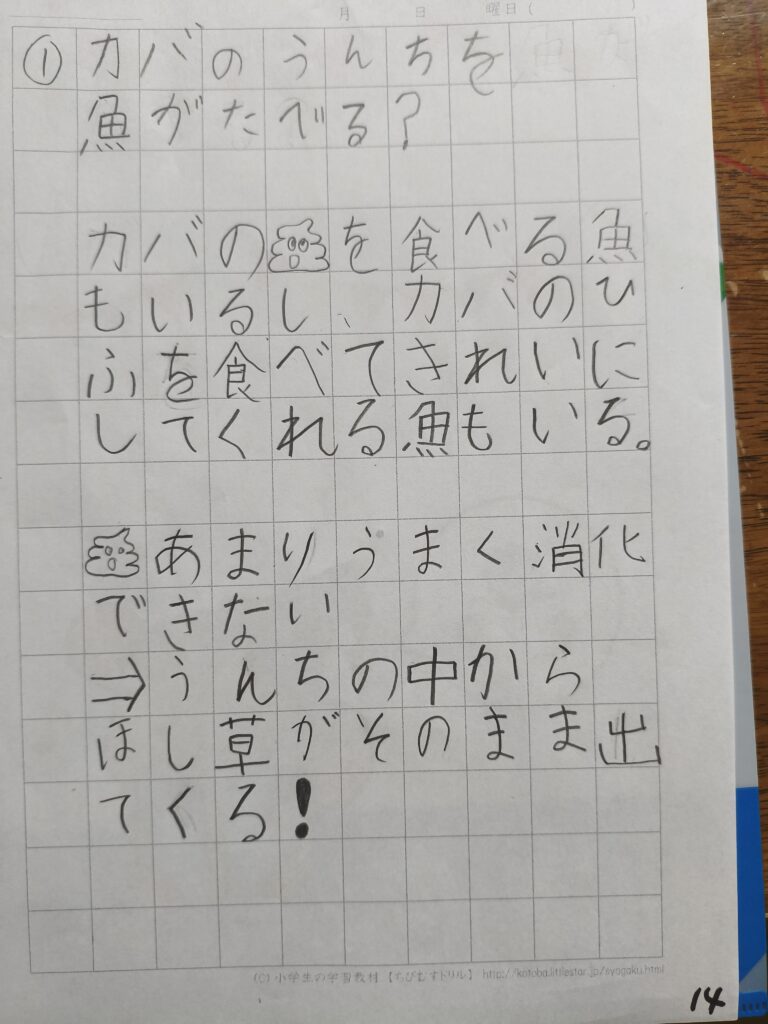 月 日 曜日(
)
①カバのうんちを
魚がたべる?
カバの💩を食べる魚
もいるし、カバのひ
ふを食べてきれいに
してくれる魚もいる。
💩あまりうまく消化
できない
⇒うんちの中から
ほし草がそのまま出
てくる!
(C)小学生の学習教材【ちびむすドリル】 http://kotoba.littlestar.jp/syogaku.html
14